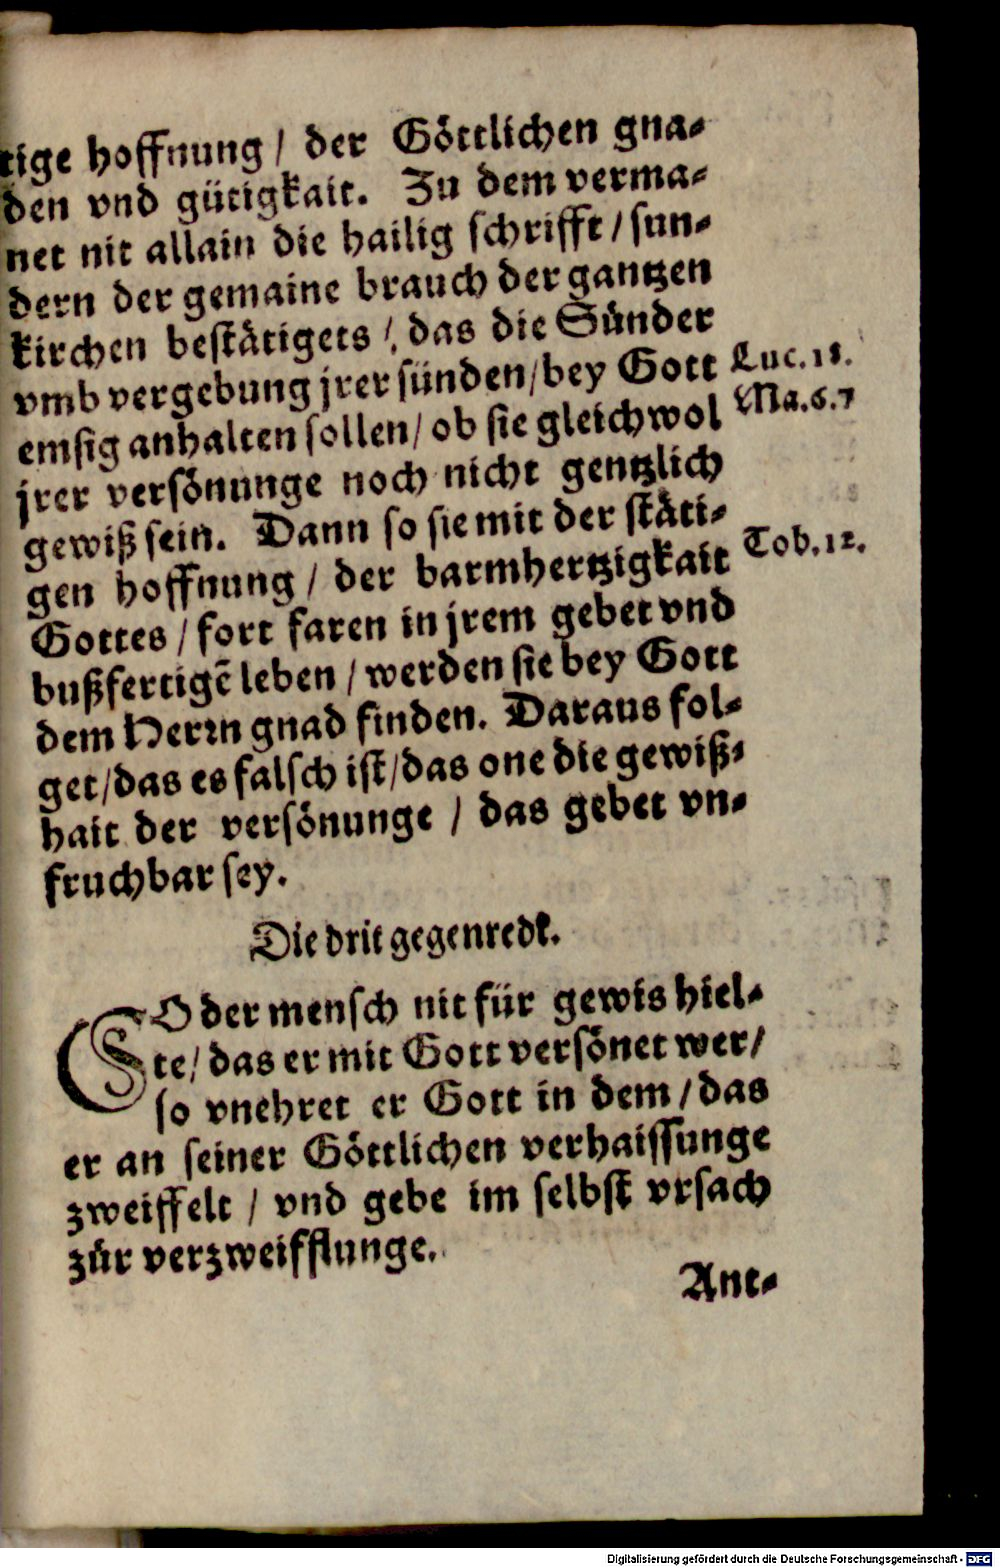 tige hoffnung / der Göttlichen gna⸗
den vnd gütigkait. Zu dem verma⸗
net nit allain die hailig schrifft / sun⸗
dern der gemaine brauch der gantzen
kirchen bestätigets /, das die Sünder
vmb vergebung jrer sünden / bey Gott Luc. 18.
emsig anhalten sollen / ob sie gleichwol Ma. 6. 7
jrer versönunge noch nicht gentzlich
gewiß sein. Dann so sie mit der stäti⸗
gen hoffnung / der barmhertzigkait Tob. 12.
Gottes / fort faren in jrem gebet vnd
bußfertigē leben / werden sie bey Gott
dem Herrn gnad finden. Daraus fol⸗
get / das es falsch ist / das one die gewiß⸗
hait der versönunge / das gebet vn⸗
fruchbar sey.
Die drit gegenredt.
SO der mensch nit für gewis hiel⸗
te / das er mit Gott versönet wer /
so vnehret er Gott in dem / das
er an seiner Göttlichen verhaissunge
zweiffelt / vnd gebe im selbst vrsach
zůr verzweifflunge.
Ant⸗
Digitalisierung gefördert durch die Deutsche Forschungsgemeinschaft - DFG